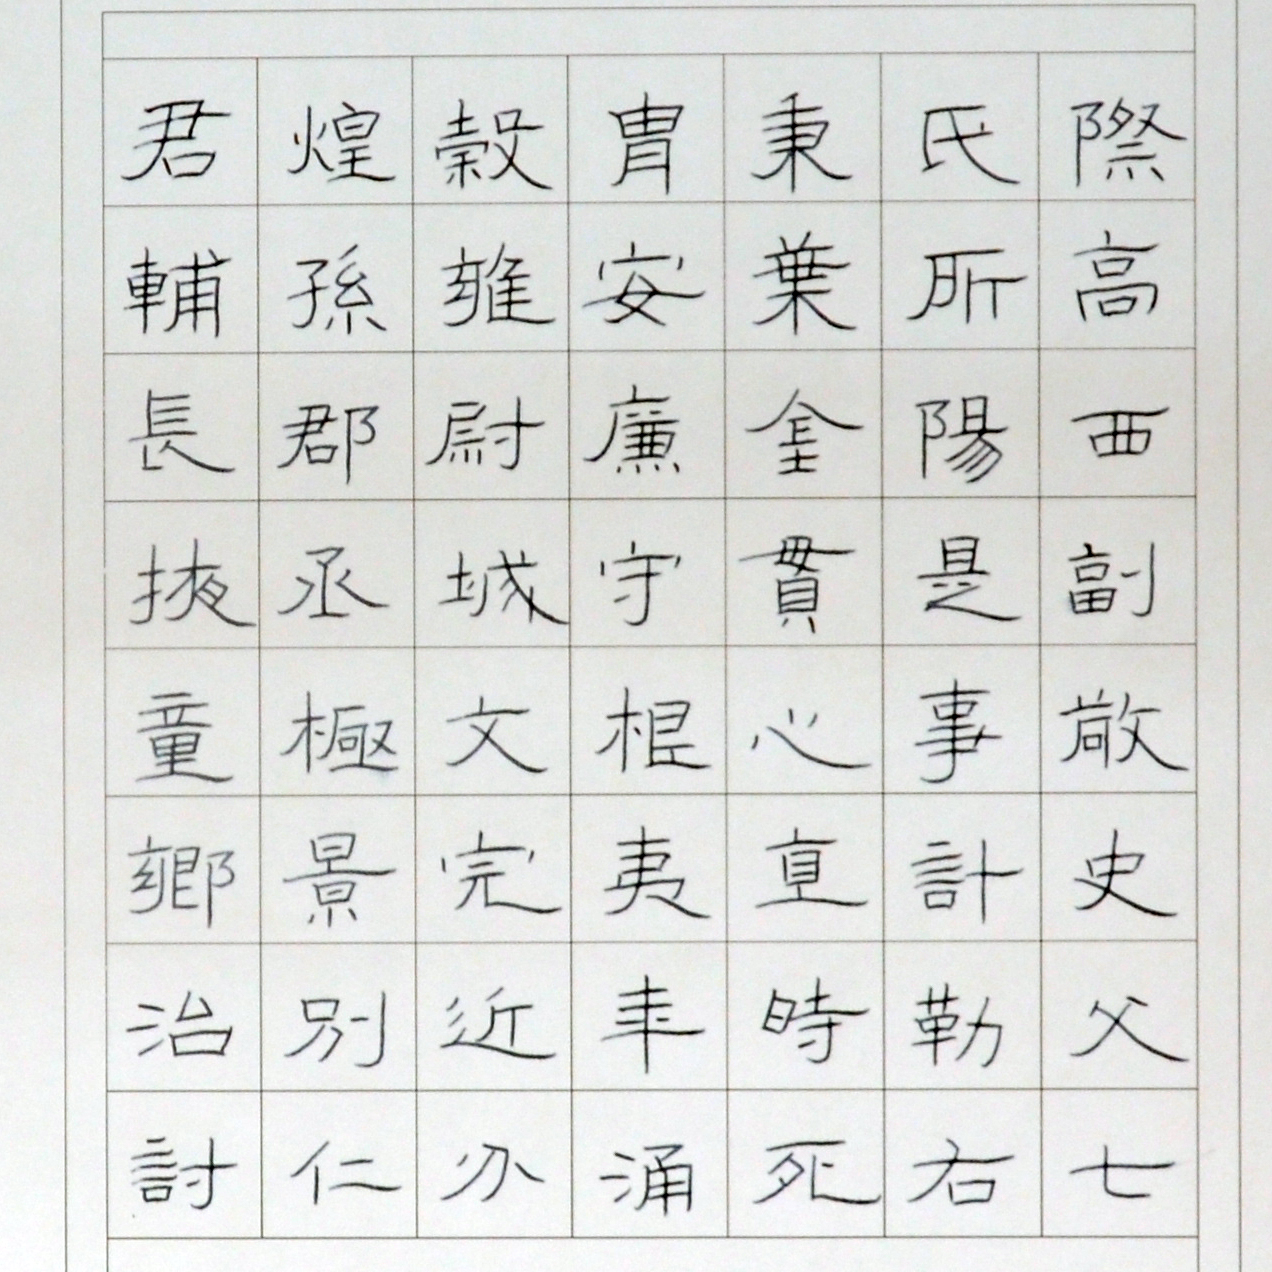 際高西副敞史父七
氏所陽是事計勒右
秉葉金貫心直時死
冑安廉守根夷年涌
穀雍尉城文完近分
煌孫郡丞極景別仁
君輔長掖童鄉治討